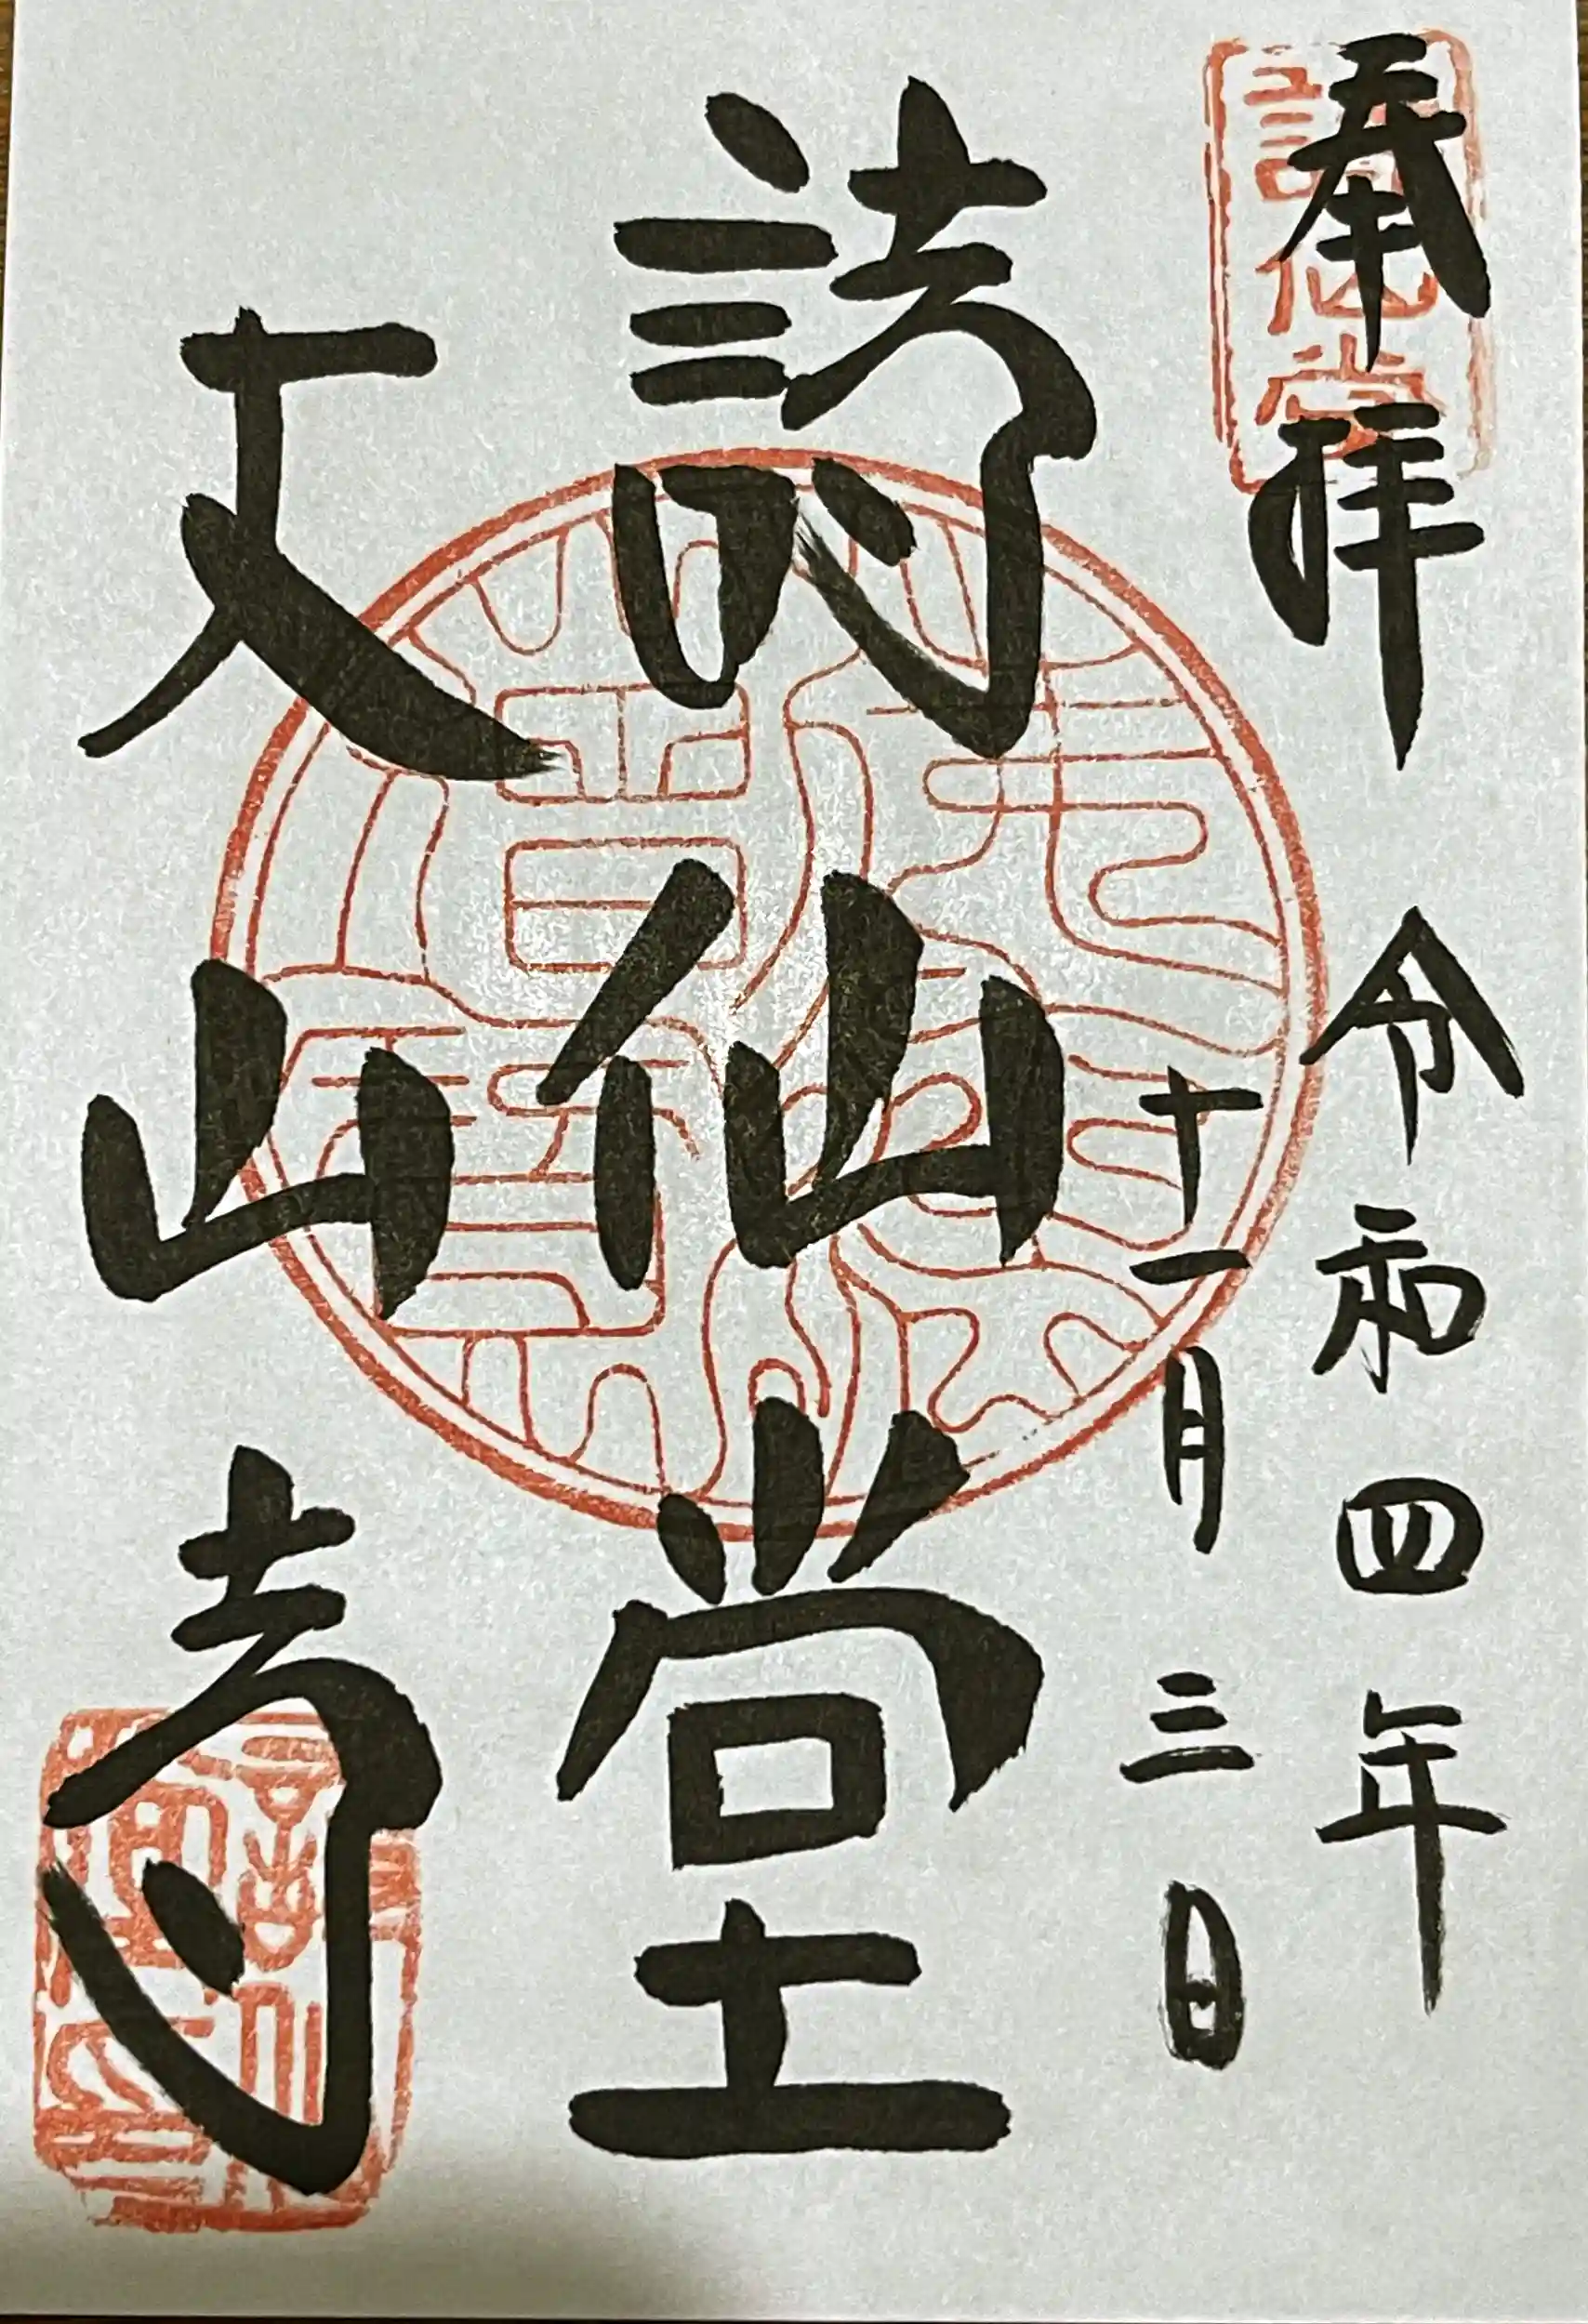 奉拝
令和四年
十一月三日
詩仙堂
丈山寺
詩仙堂